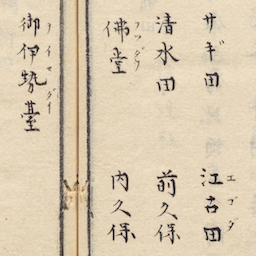 サギ田
江古田
エゴダ
清水田
前久保
佛堂
ブツダウ
内久保
御伊勢臺
ヲイセダイ